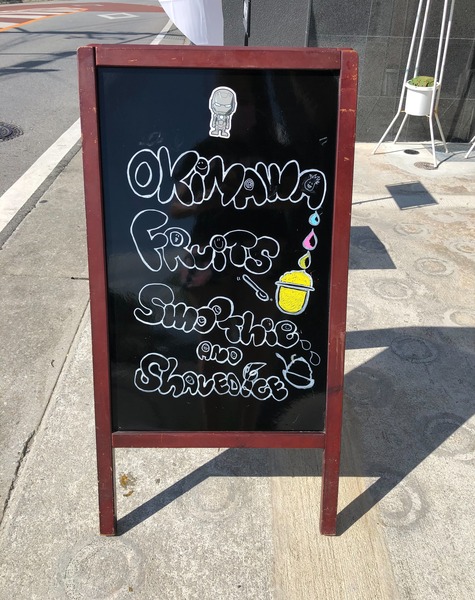 OKiNAWA
FRuiTS
SmooThie
AND
ShAVED iCE